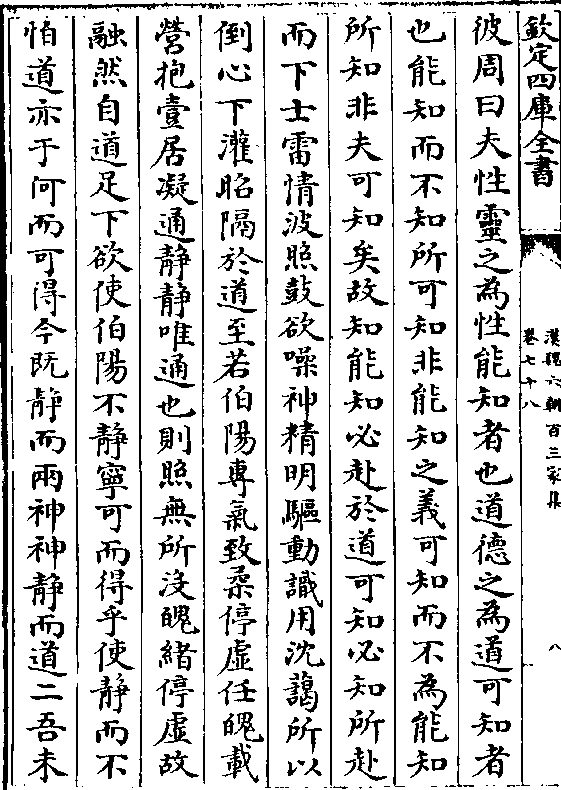 欽定四庫全書
漢魏六朝百三家集
卷七十八
八
彼周曰夫性靈之為性能知者也道德之為道可知者
也能知而不知所可知非能知之義可知而不為能知
所知非夫可知矣故知能知必赴於道可知必知所赴
而下士雷情波照鼓欲噪神精明驅動識用沈藹所以
倒心下灌昭隔於道至若伯陽專氣致柔停虛任魄載
營抱壹居凝通静静唯通也則照無所沒魄緒停虛故
融然自道足下欲使伯陽不静寧可而得乎使静而不
怕道亦于何而可得今既静而兩神神静而道二吾未